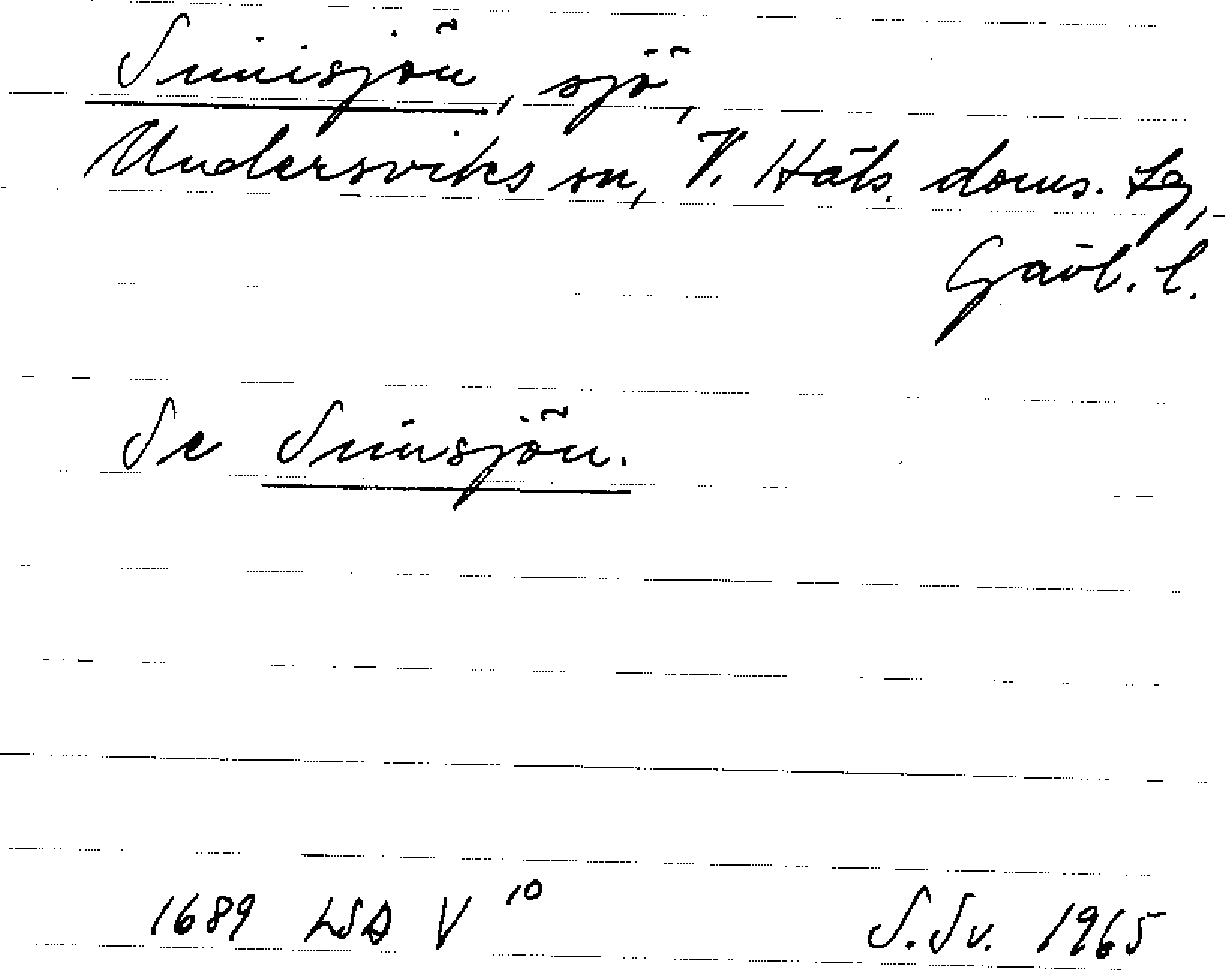 Sinisjön, sjö,
Undersviks sn, V. Häls. doms. tg,
Gävl. l.
Se Sinsjön.
1689 LSA V 10
S.Sv. 1965